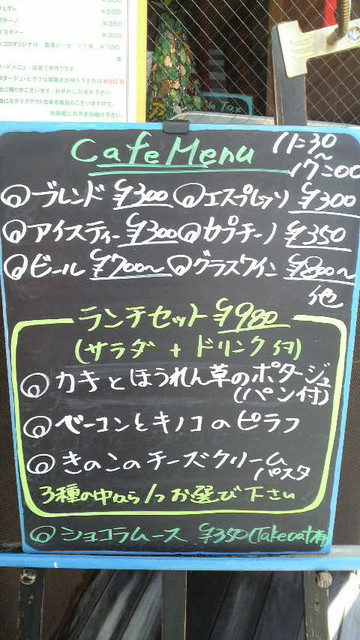 ¥250
¥350
No Tax
Cafe Menu
11:30
~
17:00
ブレンド ¥300 エスプレッソ ¥300
アイスティー ¥300 カプチーノ ¥350
ビール ¥700~ グラスワイン ¥800~
他
ランチセット ¥980
(サラダ + ドリンク付)
カキとほうれん草のポタージュ
(パン付)
ベーコンとキノコのピラフ
きのこのチーズクリーム
パスタ
3種の中から1つお選び下さい
ショコラムース ¥350 (Take out有)